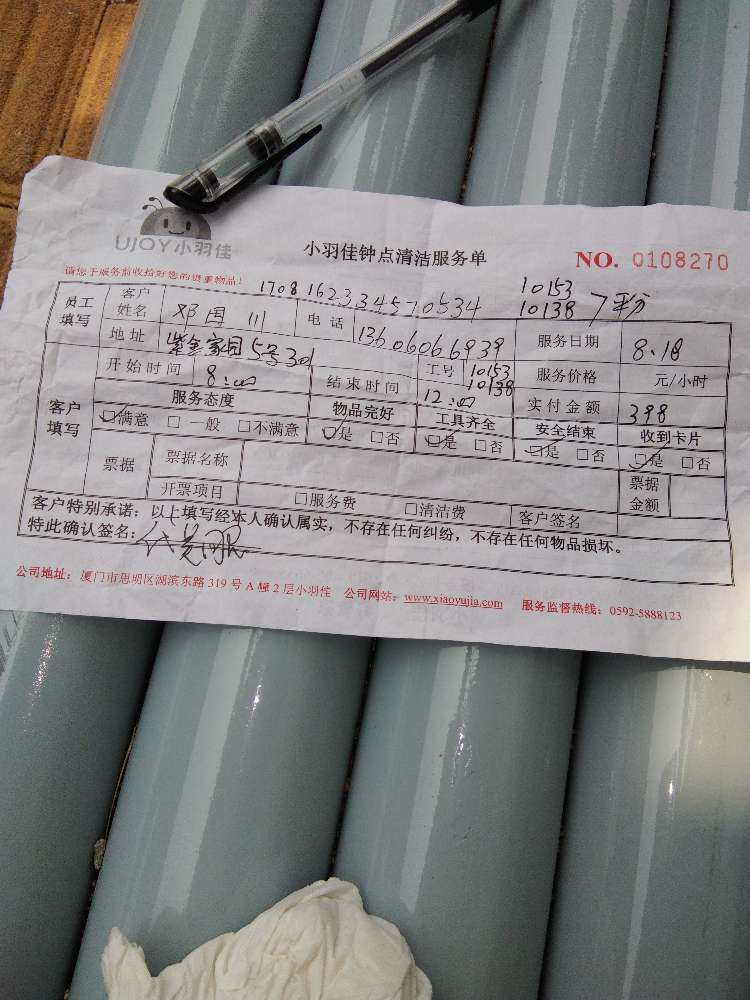 UJOY小羽佳
小羽佳钟点清洁服务单
NO. 0108270
请您于服务前收拾好您的贵重物品!
1708162334570534
10153
10138
员工填写
客户姓名 邓国川 电话 13606066939 服务日期 8.18
地址 紫金家园5号301 工号 10153 10138 服务价格 元/小时
客户填写
开始时间 8:00 结束时间 12:00 实付金额 398
服务态度 物品完好 工具齐全 安全结束 收到卡片
☑满意 □一般 □不满意 ☑是 □否 ☑是 □否 ☑是 □否 ☑是 □否
票据 票据名称 票据金额
开票项目 □服务费 □清洁费 客户签名
客户特别承诺:以上填写经本人确认属实,不存在任何纠纷,不存在任何物品损坏。
特此确认签名:
公司地址:厦门市思明区湖滨东路319号A幢2层小羽佳 公司网站:www.xiaoyujia.com 服务监督热线:0592-5888123